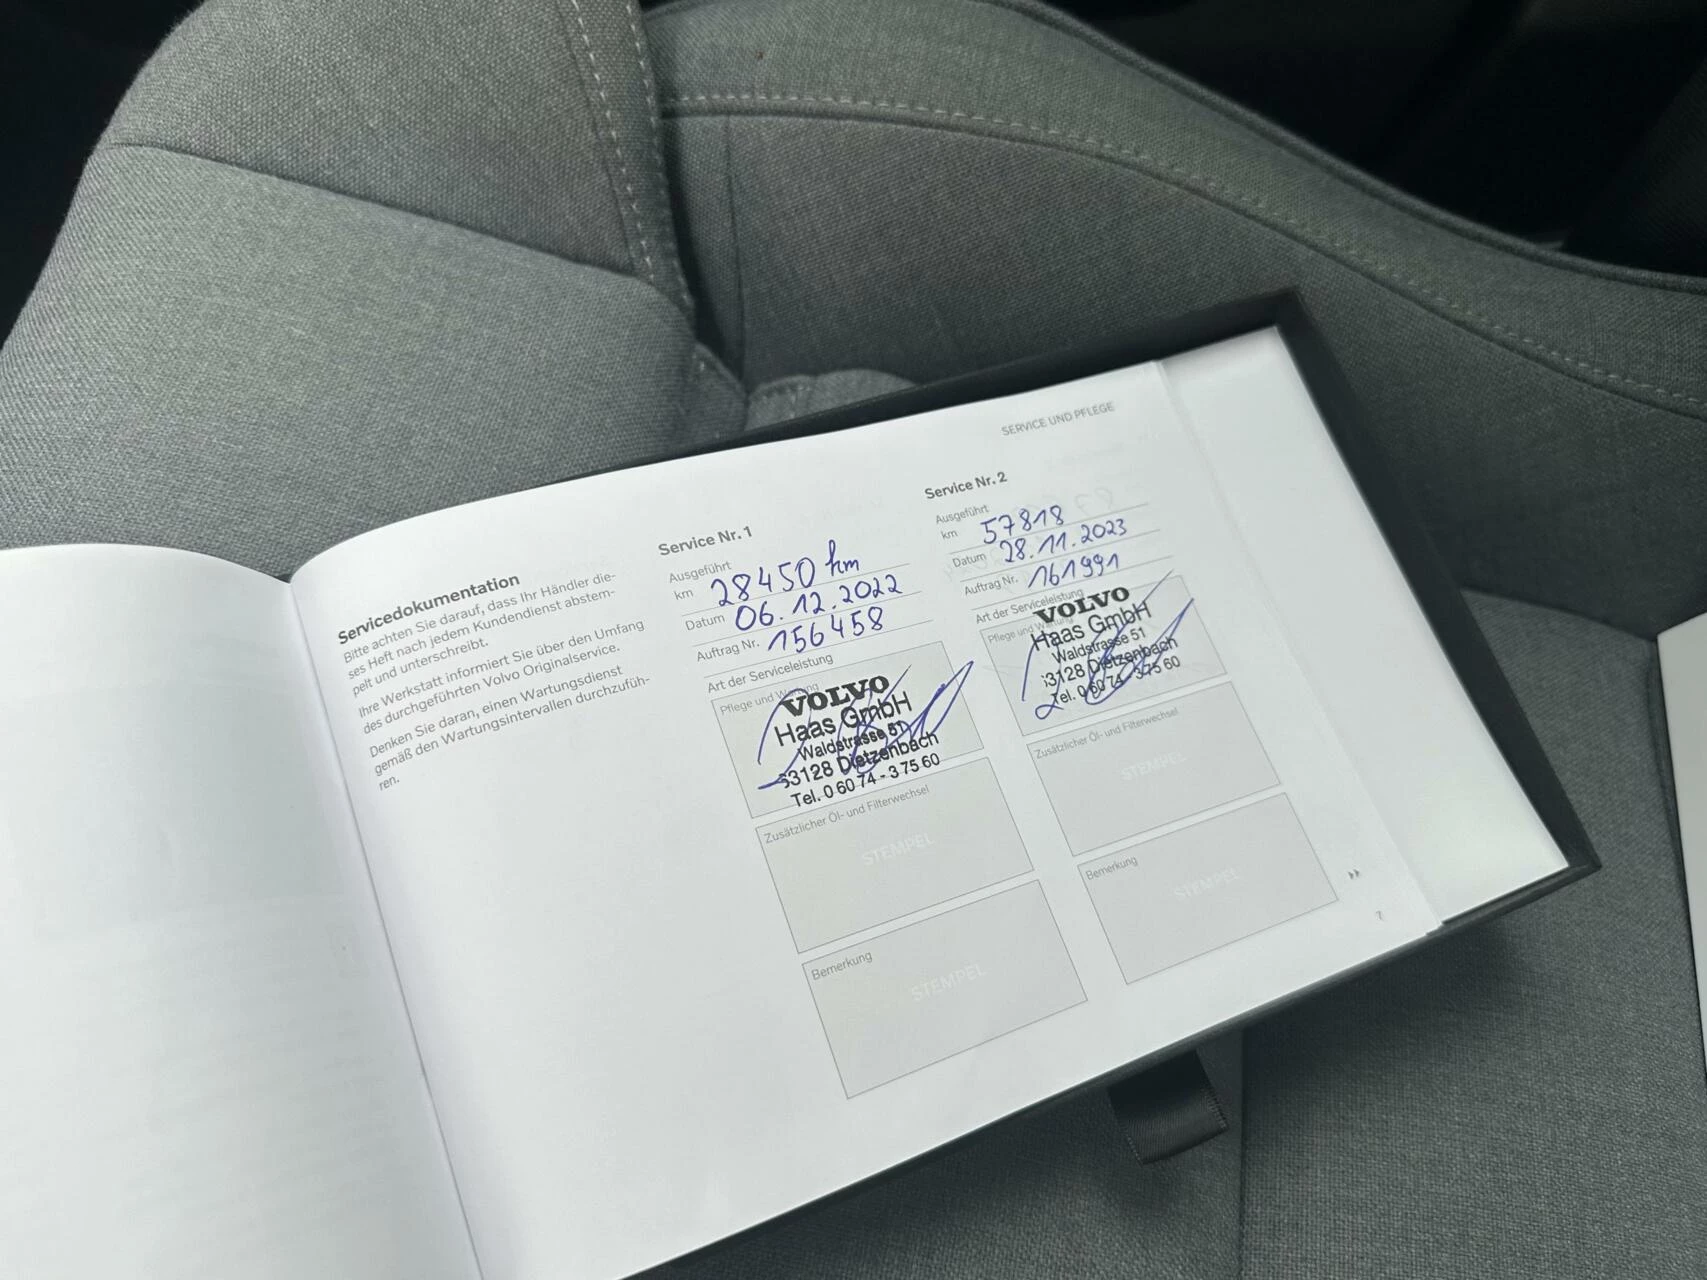 SERVICE UND PFLEGE
Servicedokumentation
Bitte achten Sie darauf, dass Ihr Händler die-
ses Heft nach jedem Kundendienst abstem-
pelt und unterschreibt.
Ihre Werkstatt informiert Sie über den Umfang
des durchgeführten Volvo Originalservice.
Denken Sie daran, einen Wartungsdienst
gemäß den Wartungsintervallen durchzufüh-
ren.
Service Nr. 1
Ausgeführt
km 28450 km
Datum 06.12.2022
Auftrag Nr. 156458
Art der Serviceleistung
Pflege und Wartung
VOLVO
Haas GmbH
Waldstrasse 51
63128 Dietzenbach
Tel. 0 60 74 - 3 75 60
Zusätzlicher Öl- und Filterwechsel
STEMPEL
Bemerkung
STEMPEL
Service Nr. 2
Ausgeführt
km 57818
Datum 28.11.2023
Auftrag Nr. 161991
Art der Serviceleistung
Pflege und Wartung
VOLVO
Haas GmbH
Waldstrasse 51
63128 Dietzenbach
Tel. 0 60 74 - 3 75 60
Zusätzlicher Öl- und Filterwechsel
STEMPEL
Bemerkung
STEMPEL
7